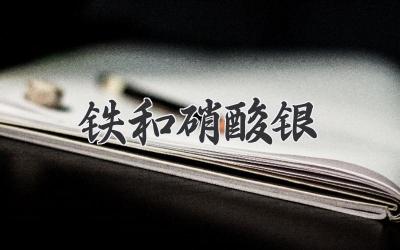 铁和硝酸银